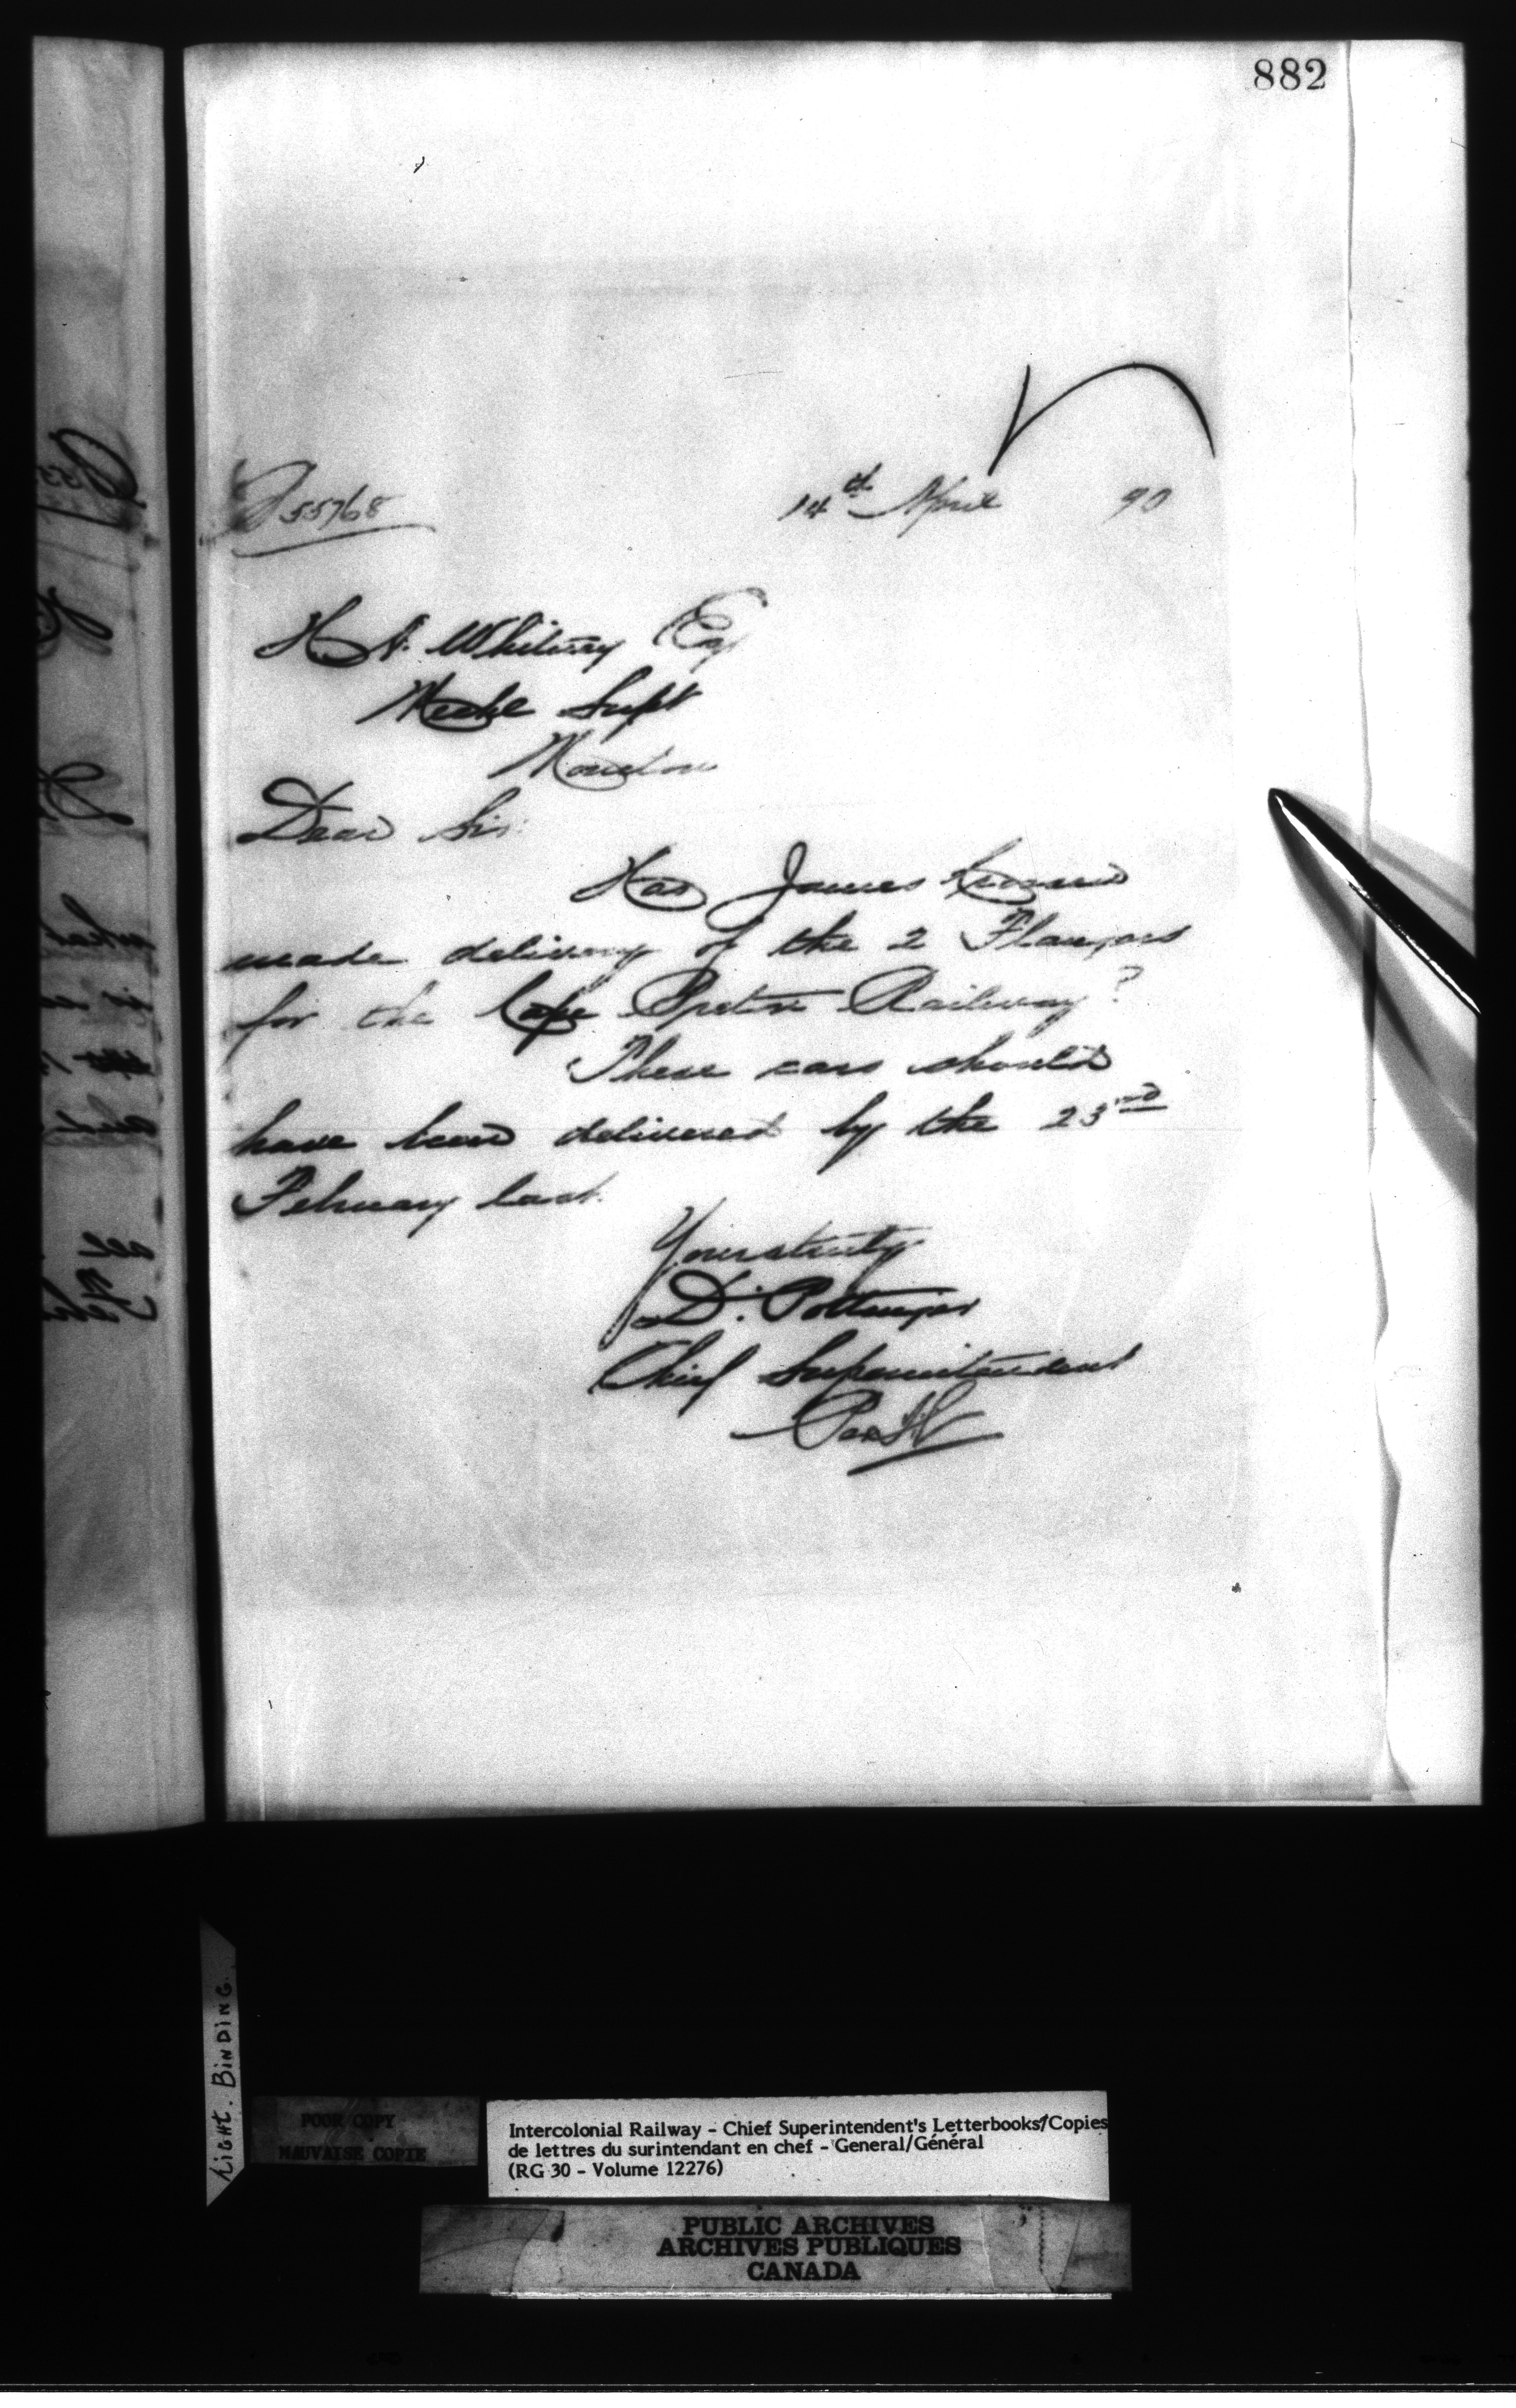 882
55768
14th April 90
H. A. Whitney Esq
Mechl Supt
Moncton
Dear Sir:
Has James
made delivery of the 2 Flangers
for the Cape Breton Railway?
These cars should
have been delivered by the 23rd
February last.
Yours truly
D. Pottinger
Chief Superintendent
Per
LIGHT. BINDING.
POOR COPY
MAUVAISE COPIE
Intercolonial Railway - Chief Superintendent's Letterbooks/Copies
de lettres du surintendant en chef - General/Général
(RG 30 - Volume 12276)
PUBLIC ARCHIVES
ARCHIVES PUBLIQUES
CANADA